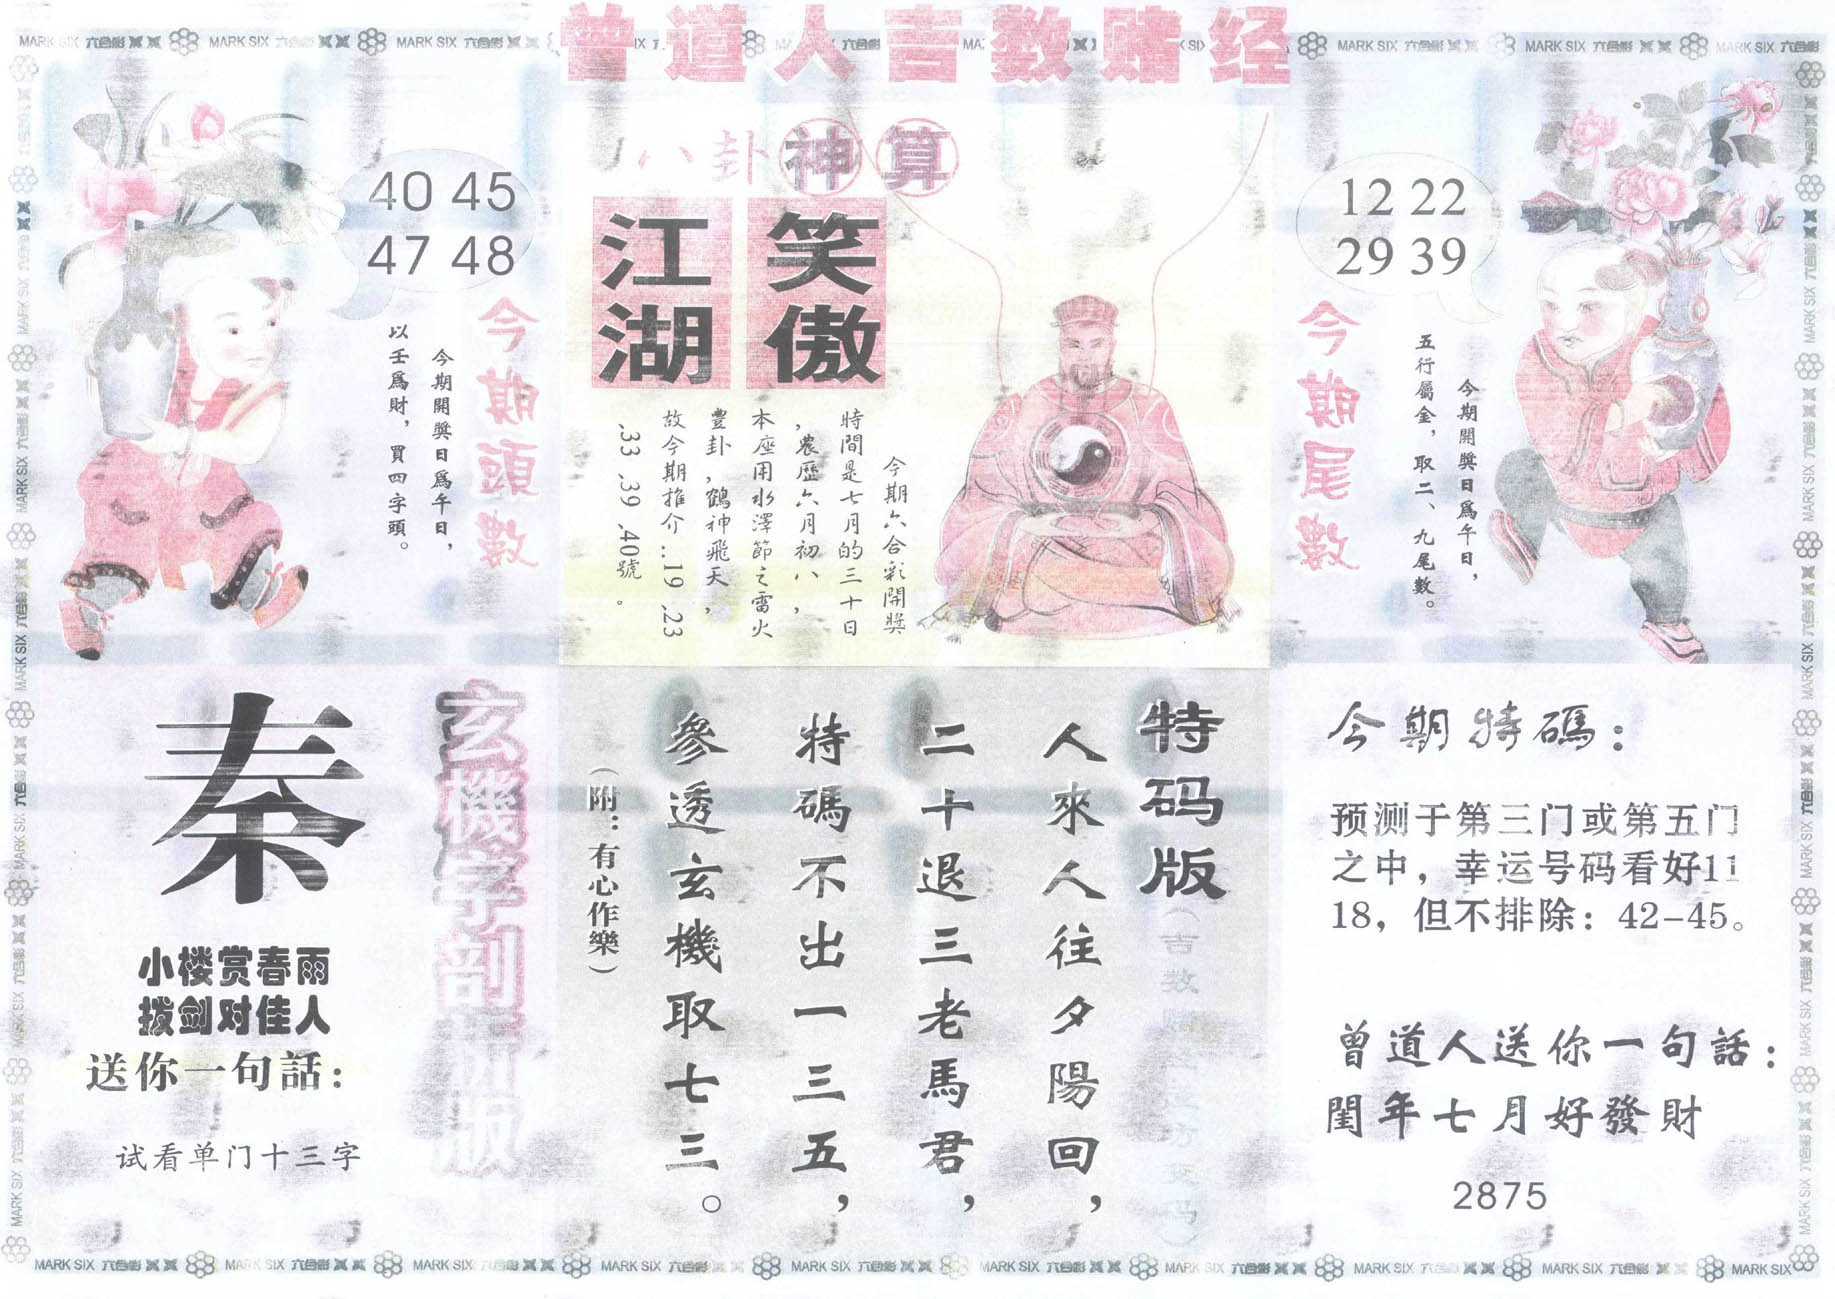 曾道人吉数赌经
八卦神算
笑傲
江湖
今期六合彩開獎
時間是七月的三十日
，農歷六月初八，
本座用水澤節之雷火
豐卦，鶴神飛天，
故今期推介..19 .23
.33 .39 .40號。
40 45
47 48
今期頭數
今期開獎日爲午日，
以壬爲財，買四字頭。
12 22
29 39
今期尾數
今期開獎日爲午日，
五行屬金，取二、九尾數。
玄機字剖析版
秦
小楼赏春雨
拨剑对佳人
送你一句話：
试看单门十三字
特码版
人來人往夕陽回，
二十退三老馬君，
特碼不出一三五，
參透玄機取七三。
（附：有心作樂）
今期特碼：
预测于第三门或第五门
之中，幸运号码看好11
18，但不排除：42-45。
曾道人送你一句話：
閏年七月好發財
2875
MARK SIX 六合彩